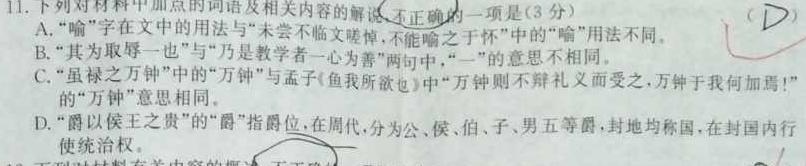 11.下列对材料中加点的词语及相关内容的解说,不正确的一项是(3分) (D)
A.“喻”字在文中的用法与“未尝不临文嗟悼,不能喻之于怀”中的“喻”用法不同。
B.“其为取辱一也”与“乃是教学者一心为善”两句中,“一”的意思不相同。
C.“虽禄之万钟”中的“万钟”与孟子《鱼我所欲也》中“万钟则不辩礼义而受之,万钟于我何加焉!”
的“万钟”意思相同。
D.“爵以侯王之贵”的“爵”指爵位,在周代,分为公、侯、伯、子、男五等爵,封地均称国,在封国内行
使统治权。
下列对材料有关内容的概